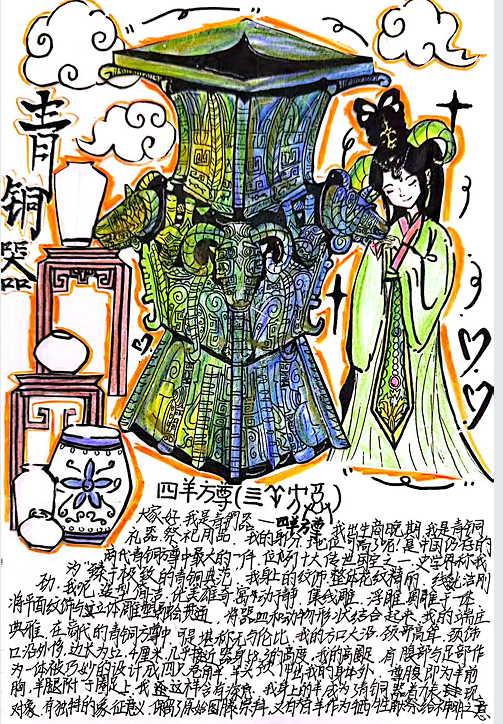 青铜器
四羊方尊(三个少恳)
大家好,我是青铜器——四羊方尊,我出生商晚期,我是青铜
礼器,祭祀用品,我的身价、地位可高了呢!是中国仍存的
商代青铜方尊中最大的一件,位列十大传世国宝之一,史学界称我
为"臻于极致的青铜典范",我身上的纹饰整体花纹精丽,线条法刚
劲,我呢造型简洁,优美雄奇,寓动于静,集线雕、浮雕、圆雕于一体
将平面纹饰与立体雕塑融会贯通,将器皿和动物形状结合起来,我的端庄
典雅,在商代的青铜方尊中可是堪称无与伦比,我的方口大沿,颈部高耸,
口沿外侈,边长为52.4厘米,几乎接近器身58.3的高度,我的高圈足,肩腹部与足部作
为一体被巧妙的设计成四只卷角羊,羊头探伸出我的身体外,尊腹即为羊前
胸,羊腿附于圈足上,我
对象,有独特的象征意义,保留了原始图腾崇拜,又有宫羊作为牺牲献祭给